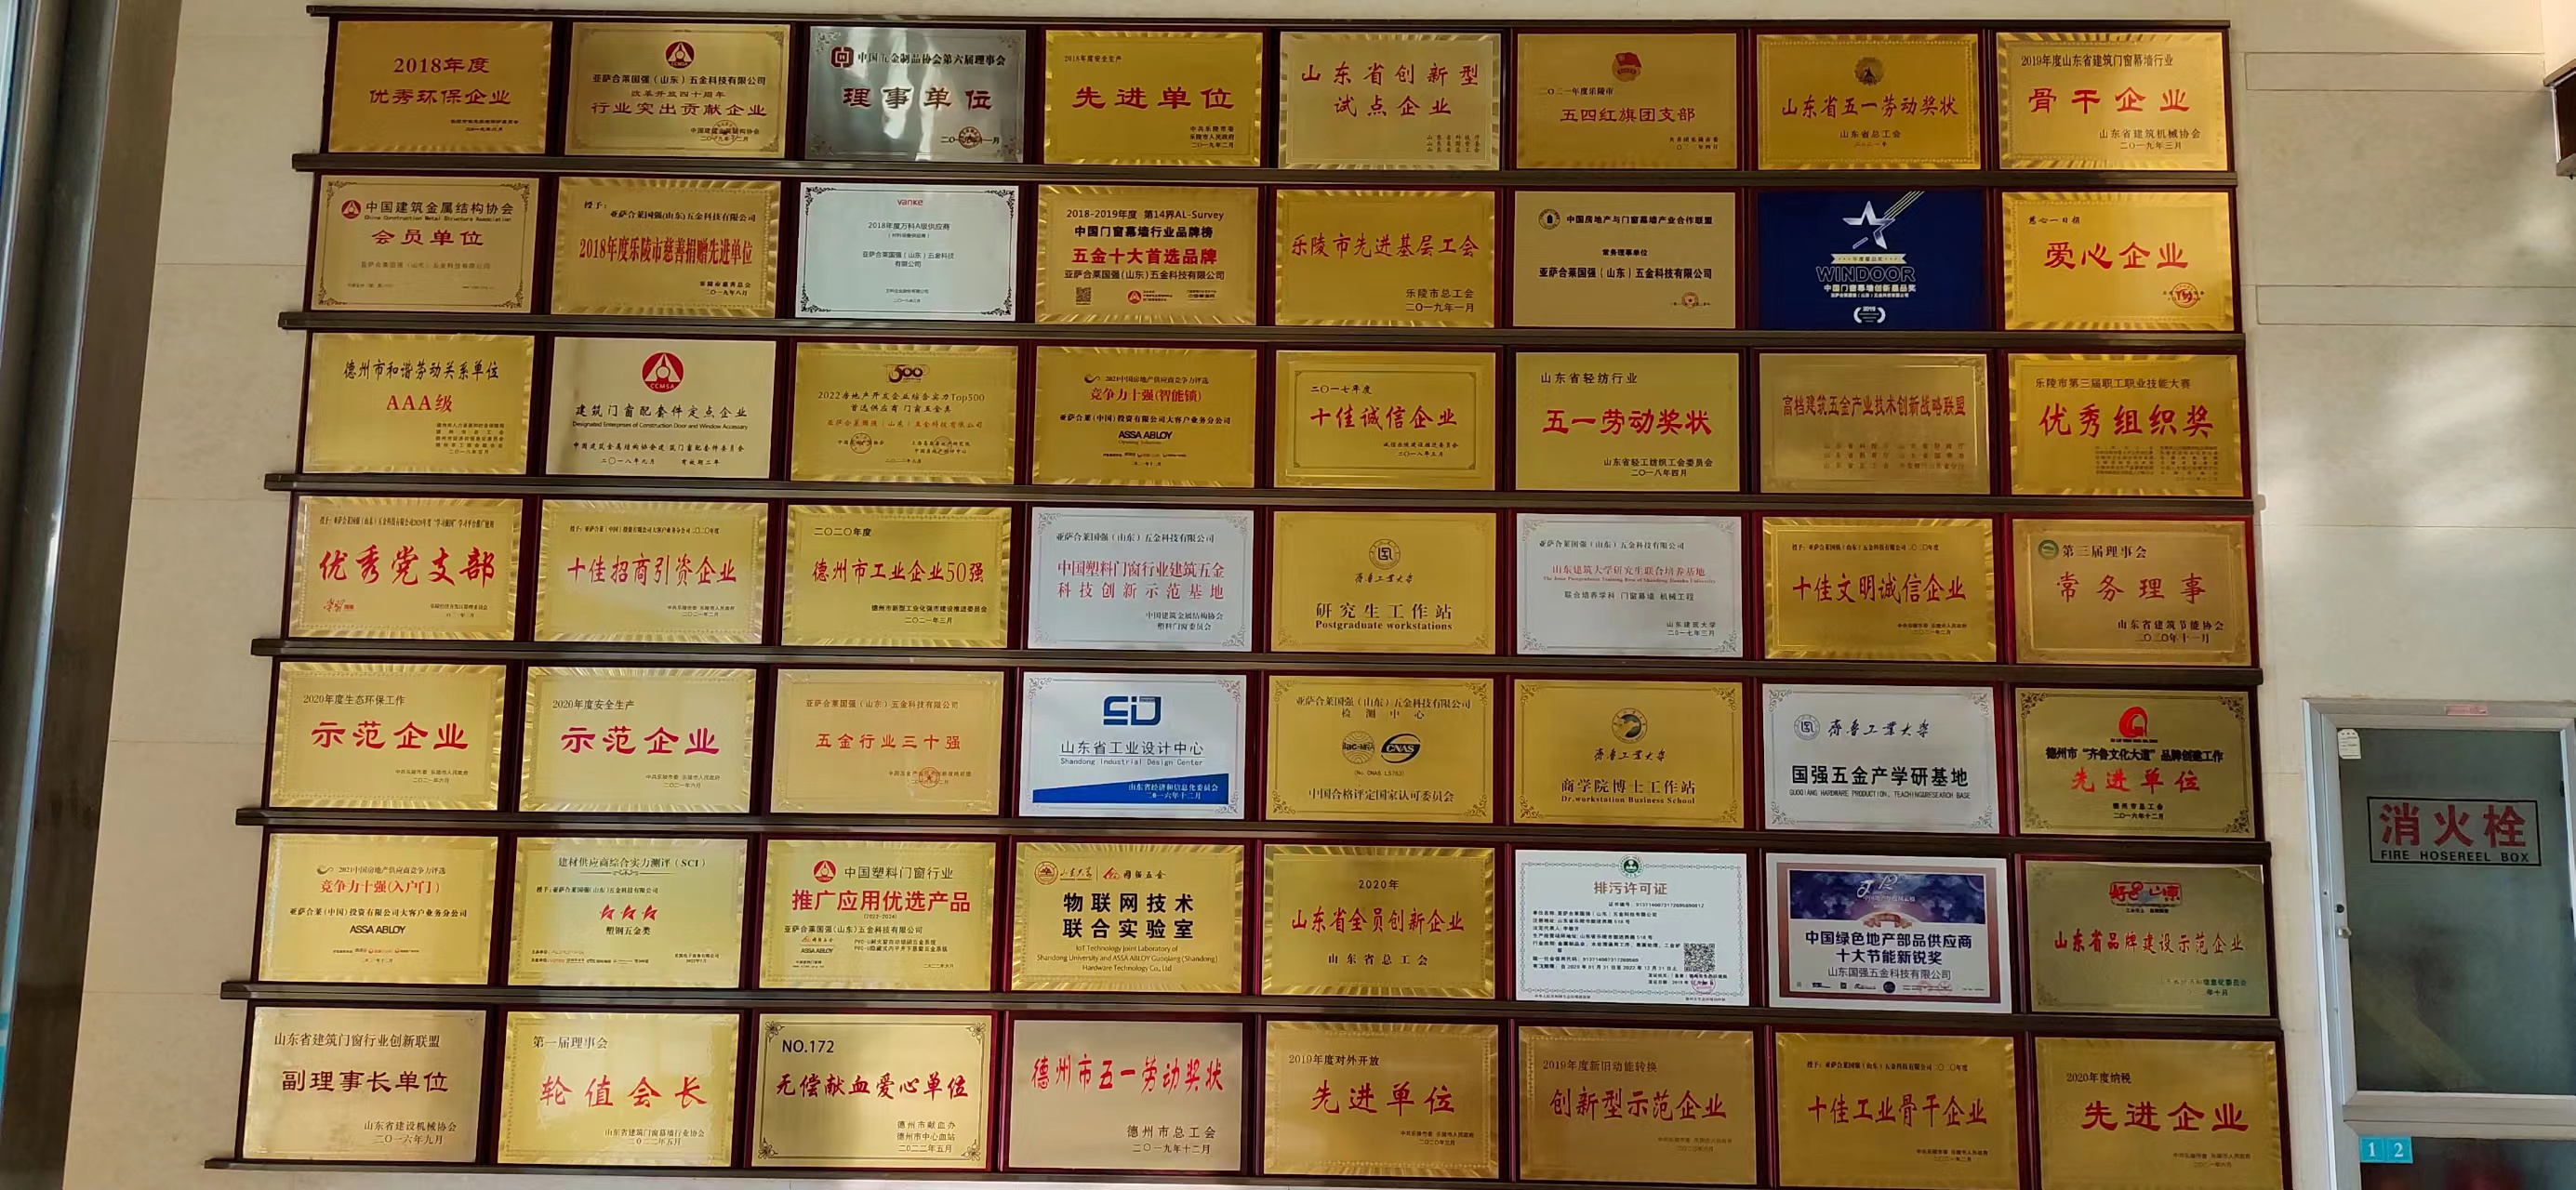 2018年度
优秀环保企业
亚萨合莱国强（山东）五金科技有限公司
改革开放四十周年
行业突出贡献企业
中国建筑金属结构协会
二〇一九年三月
中国五金制品协会第六届理事会
理事单位
2018年度安全生产
先进单位
中共乐陵市委
乐陵市人民政府
二〇一九年二月
山东省创新型
试点企业
二〇二一年度乐陵市
五四红旗团支部
山东省五一劳动奖状
山东省总工会
2019年度山东省建筑门窗幕墙行业
骨干企业
山东省建筑机械协会
二〇一九年三月
中国建筑金属结构协会
China Construction Metal Structure Association
会员单位
亚萨合莱国强（山东）五金科技有限公司
授予：
亚萨合莱国强(山东)五金科技有限公司
2018年度乐陵市慈善捐赠先进单位
乐陵市慈善总会
二〇一九年八月
vanke
2018年度万科A级供应商
亚萨合莱国强（山东）五金科技
有限公司
2018-2019年度 第14界AL-Survey
中国门窗幕墙行业品牌榜
五金十大首选品牌
亚萨合莱国强(山东)五金科技有限公司
乐陵市先进基层工会
乐陵市总工会
二〇一九年一月
中国房地产与门窗幕墙产业合作联盟
常务理事单位
亚萨合莱国强（山东）五金科技有限公司
WINDOOR
中国门窗幕墙创新晶品奖
2019
慈心一日捐
爱心企业
德州市和谐劳动关系单位
AAA级
CCMSA
建筑门窗配套件定点企业
Designated Enterprises of Construction Door and Window Accessary
中国建筑金属结构协会建筑门窗配套件委员会
二〇一八年九月 有效期二年
500
2022房地产开发企业综合实力Top500
首选供应商 门窗五金类
亚萨合莱国强（山东）五金科技有限公司
2021中国房地产供应商竞争力评选
竞争力十强(智能锁)
亚萨合莱(中国)投资有限公司大客户业务分公司
ASSA ABLOY
二〇一七年度
十佳诚信企业
二〇一八年三月
山东省轻纺行业
五一劳动奖状
山东省轻工纺织工会委员会
二〇一八年四月
高档建筑五金产业技术创新战略联盟
乐陵市第三届职工职业技能大赛
优秀组织奖
优秀党支部
授予：亚萨合莱（中国）投资有限公司大客户业务分公司二〇二〇年度
十佳招商引资企业
中共乐陵市委 乐陵市人民政府
二〇二一年二月
二〇二〇年度
德州市工业企业50强
德州市新型工业化强市建设推进委员会
二〇二一年三月
亚萨合莱国强（山东）五金科技有限公司
中国塑料门窗行业建筑五金
科技创新示范基地
中国建筑金属结构协会
塑料门窗委员会
齐鲁工业大学
研究生工作站
Postgraduate workstations
亚萨合莱国强（山东）五金科技有限公司
山东建筑大学研究生联合培养基地
联合培养学科 门窗幕墙 机械工程
山东建筑大学
二〇一七年三月
授予：亚萨合莱国强（山东）五金科技有限公司二〇二〇年度
十佳文明诚信企业
中共乐陵市委 乐陵市人民政府
二〇二一年二月
第三届理事会
常务理事
山东省建筑节能协会
二〇二〇年十一月
2020年度生态环保工作
示范企业
中共乐陵市委 乐陵市人民政府
二〇二一年六月
2020年度安全生产
示范企业
中共乐陵市委 乐陵市人民政府
二〇二一年六月
亚萨合莱国强（山东）五金科技有限公司
五金行业三十强
山东省工业设计中心
Shandong Industrial Design Center
山东省经济和信息化委员会
二〇一六年十二月
亚萨合莱国强（山东）五金科技有限公司
检测中心
ilac-MRA
CNAS
(No. CNAS L5763)
中国合格评定国家认可委员会
齐鲁工业大学
商学院博士工作站
Dr.workstation Business School
齐鲁工业大学
国强五金产学研基地
GUOQIANG HARDWARE PRODUCTION, TEACHING&RESEARCH BASE
德州市“齐鲁文化大道”品牌创建工作
先进单位
德州市总工会
二〇一六年十二月
2021中国房地产供应商竞争力评选
竞争力十强(入户门)
亚萨合莱(中国)投资有限公司大客户业务分公司
ASSA ABLOY
建材供应商综合实力测评（SCI）
授予：亚萨合莱国强(山东)五金科技有限公司
塑钢五金类
中国塑料门窗行业
推广应用优选产品
(2022-2024)
亚萨合莱国强(山东)五金科技有限公司
ASSA ABLOY
山东大学
国强五金
物联网技术
联合实验室
IoT Technology Joint Laboratory of
Shandong University and ASSA ABLOY Guoqiang (Shandong)
Hardware Technology Co., Ltd
2020年
山东省全员创新企业
山东省总工会
排污许可证
中国绿色地产部品供应商
十大节能新锐奖
山东国强五金科技有限公司
好品山东
山东省品牌建设示范企业
山东省建筑门窗行业创新联盟
副理事长单位
山东省建设机械协会
二〇一六年九月
第一届理事会
轮值会长
山东省建筑门窗幕墙行业协会
二〇二二年五月
NO.172
无偿献血爱心单位
德州市献血办
德州市中心血站
二〇二二年五月
德州市五一劳动奖状
德州市总工会
二〇一九年十二月
2019年度对外开放
先进单位
中共乐陵市委 乐陵市人民政府
二〇二〇年三月
2019年度新旧动能转换
创新型示范企业
授予：亚萨合莱国强（山东）五金科技有限公司二〇二〇年度
十佳工业骨干企业
中共乐陵市委 乐陵市人民政府
二〇二一年二月
2020年度纳税
先进企业
中共乐陵市委 乐陵市人民政府
消火栓
FIRE HOSEREEL BOX
1 2